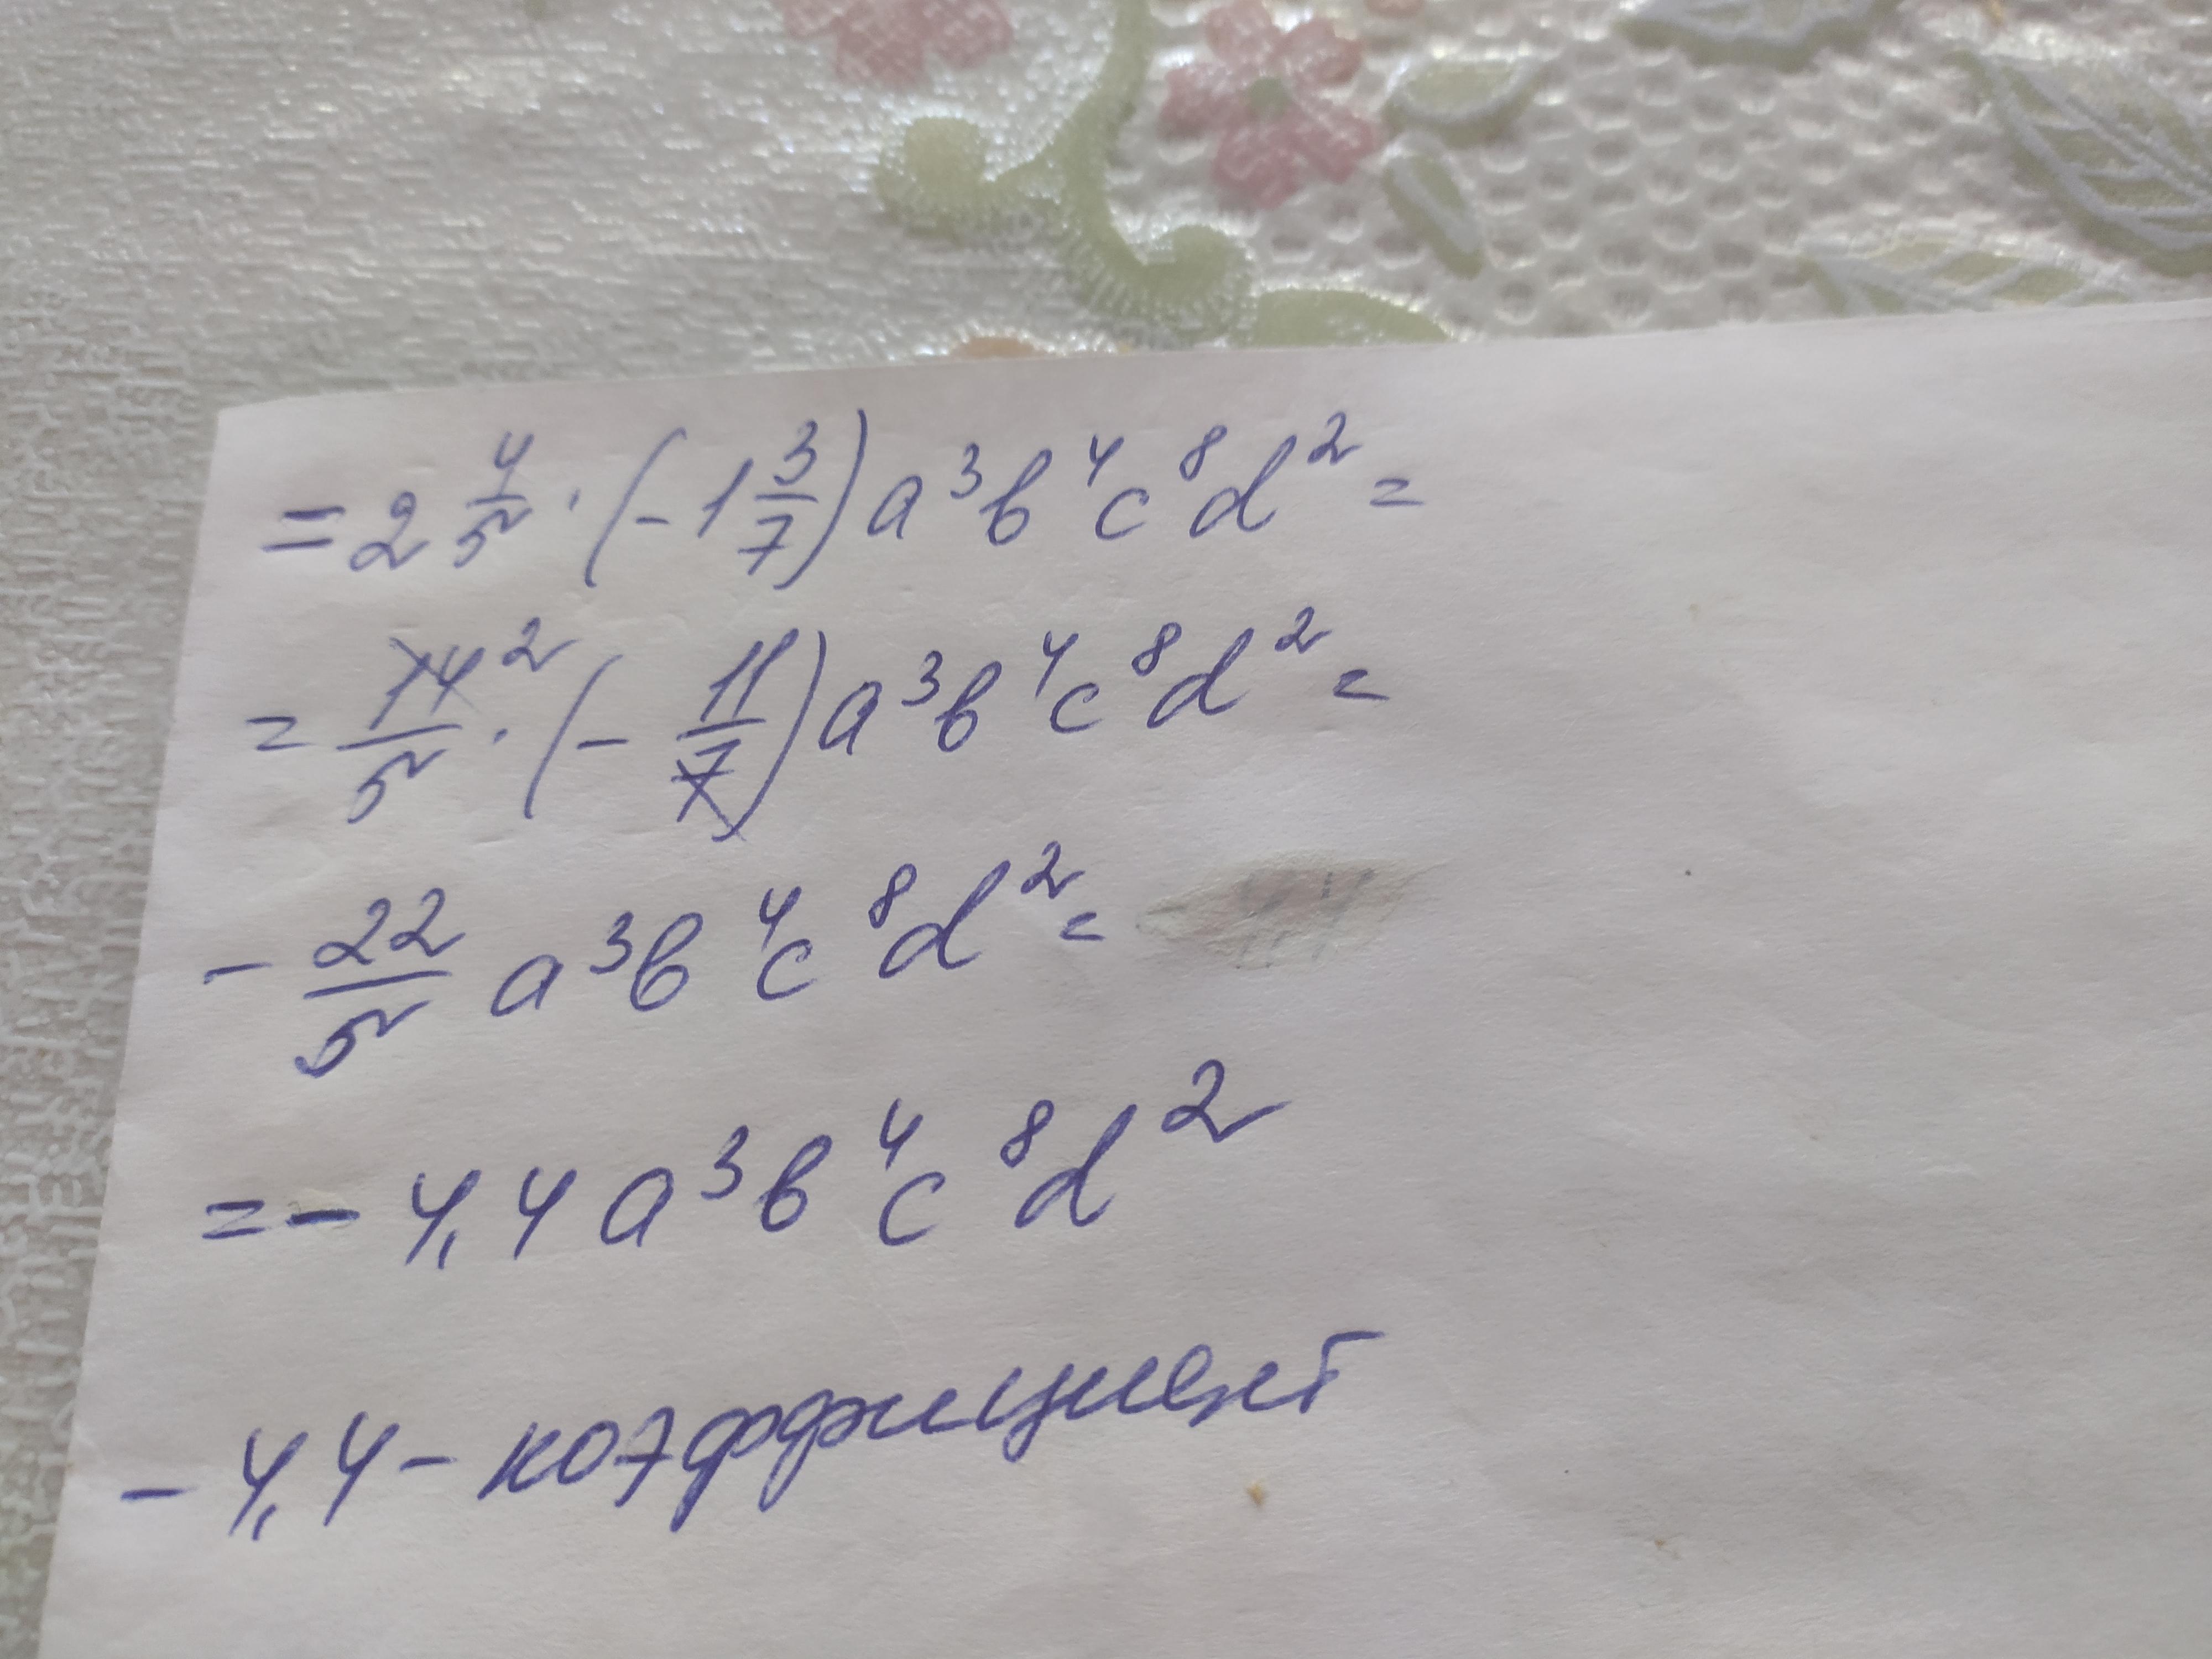 = 2 4/5 · (- 1 3/7) a³b⁴c⁸d² =
= 14/5 ² · (- 11/7) a³b⁴c⁸d² =
- 22/5 a³b⁴c⁸d² =
= - 4,4 a³b⁴c⁸d²
- 4,4 - коэффициент